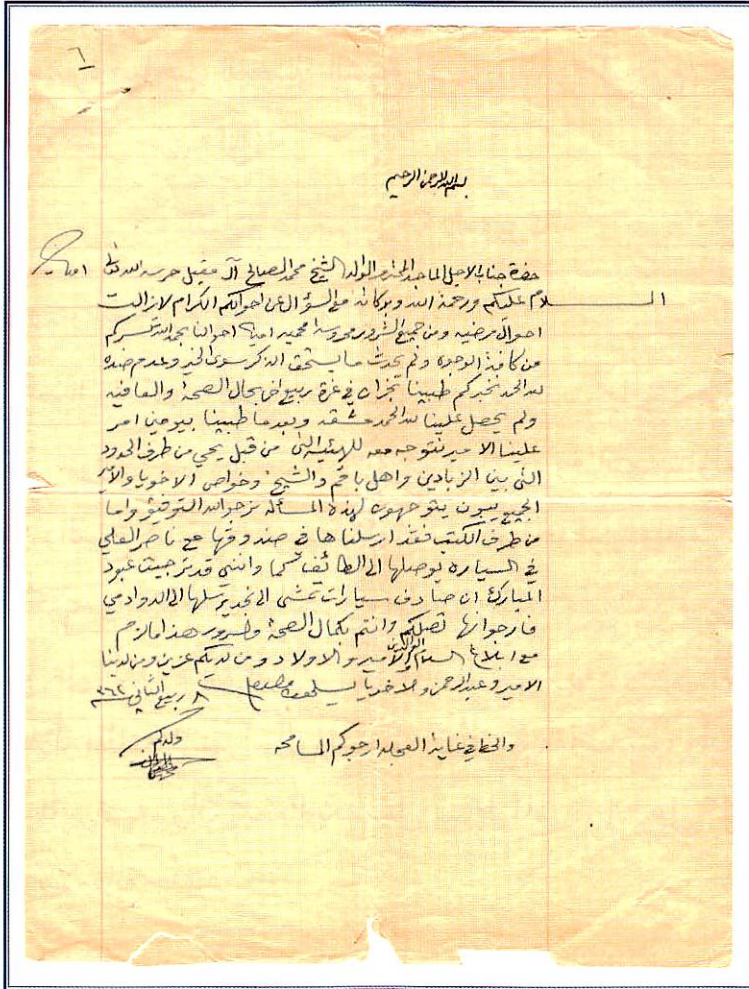 ٦
بسم الله الرحمن الرحيم
حضرة جناب الاجل الماجد المحترم الوالد الشيخ محمد الصالح آل مقبل حرسه الله تعالى امين
الســـــــلام عليكم ورحمة الله وبركاته مع السؤال عن احوالكم الكرام لازالت
احوال مرضيه ومن جميع الشرور محروسة محميه امين احوالنا بحمد الله تسركم
من كافة الوجوه ولم يحدث ما يستحق الذكر سوى الخير وعدم ضده
لله الحمد نخبركم طبينا نجران في غرة ربيع اخر بحال الصحة والعافيه
ولم يحصل علينا لله الحمد مشقه وبعد ما طبينا بيومين امر
علينا الامير نتوجه معه للهيئة التي من قبل يحي من طرف الحدود
التي بين واهل باقم والشيخ وخواص الاخويا والامير
الجميع يبون يتوجهون لهذه المسألة نرجو الله التوفيق واما
من طرف الكتب فقد ارسلناها في صندوقها مع ناصر العلي
في السياره يوصلها الى الطائف كما وانني قد ترجيت عبود
المبارك ان صادف سيارات تمشي الى نجد يرسلها الى الدوادمي
فارجو انها تصلكم وانتم بكمال الصحة والسرور هذا مالزم
مع ابلاغ السلام الوالدين والامير والاولاد ومن لديكم عزيز ومن لدينا
الامير وعبدالرحمن والاخويا يسلمون
٨ ربيع الثاني ٣٦٢
والخط في غاية العجله ارجوكم المسامحه
ولدكم